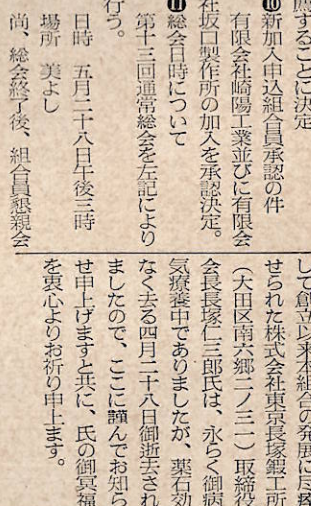 することに決定
⑩新加入申込組合員承認の件
有限会社崎陽工業並びに有限会
社坂口製作所の加入を承認決定。
⑪総会日時について
第十三回通常総会を左記により
行う。
日時　五月二十八日午後三時
場所　美よし
尚、総会終了後、組合員懇親会
して創立以来本組合の発展に尽瘁
せられた株式会社東京長塚鍛工所
（大田区南六郷二ノ三一）取締役
会長長塚仁三郎氏は、永らく御病
気療養中でありましたが、薬石効
なく去る四月二十八日御逝去され
ましたので、ここに謹んでお知ら
せ申上げますと共に、氏の御冥福
を衷心よりお祈り申上ます。